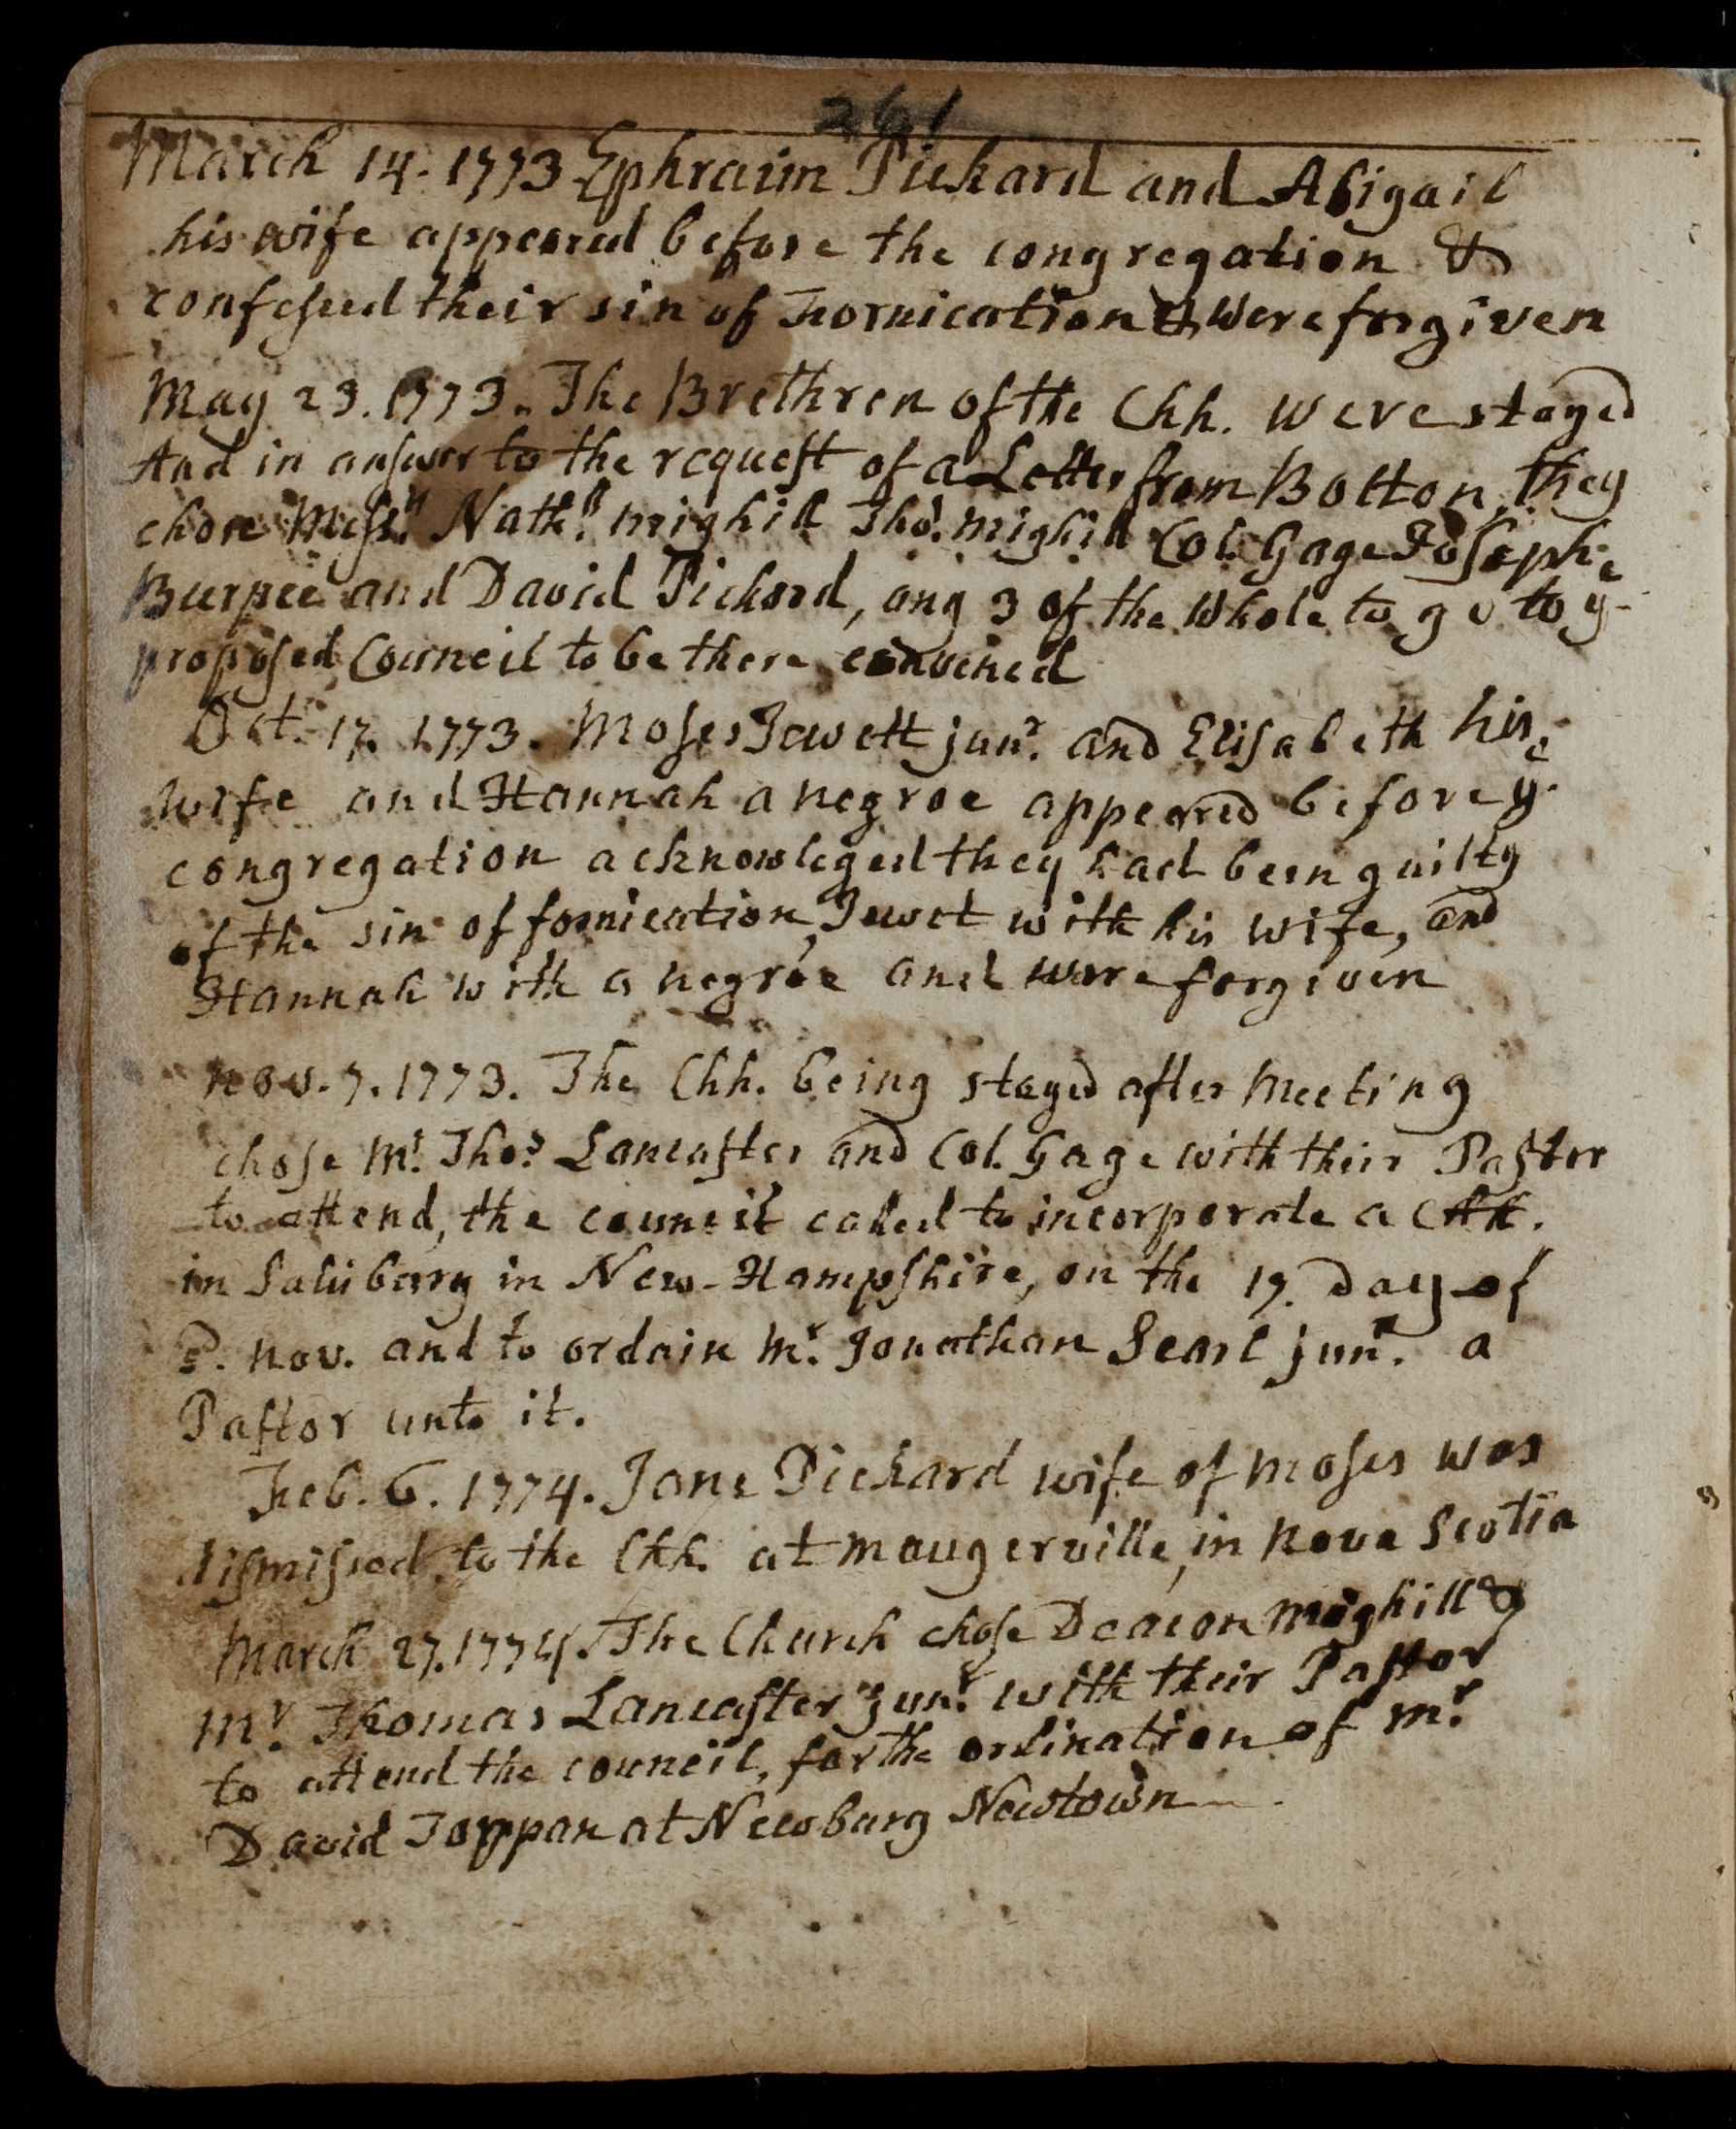 261
March 14. 1773 Ephraim Pickard and Abigail
his wife appeared before the congregation &
confessed their sin of Fornication & were forgiven
May 23. 1773. The Brethren of the Chh. were stayed
And in answer to the request of a Letter from Bolton, they
chose Messrs. Nathll. mighill Thos. mighill Col. Gage Joseph
Burpee and David Pickard, any 3 of the whole to go to ye
proposed Council to be there convened
Oct. 17. 1773. Moses Jewett junr. and Elisabeth his
wife and Hannah a negroe appeared before ye
congregation acknowleged they had been guilty
of the sin of fornication, Jewet with his wife, and
Hannah with a negroe and were forgiven
nov. 7. 1773. The Chh. being stayed after meeting
chose Mr. Thos. Lancaster and Col. Gage with their Pastor
to attend, the council called to incorporate a Chh.
in Salisbury in New-Hampshire, on the 17. Day of
nov. and to ordain mr. Jonathan Searl junr. a
Pastor unto it.
Feb. 6. 1774. Jane Pickard wife of moses was
dismissed to the Chh. at maugerville, in nova Scotia
March 27. 1774. The Church chose Deacon mighill &
mr. Thomas Lancaster junr. with their Pastor
to attend the council, for the ordination of mr.
David Toppan at Newbury Newtown